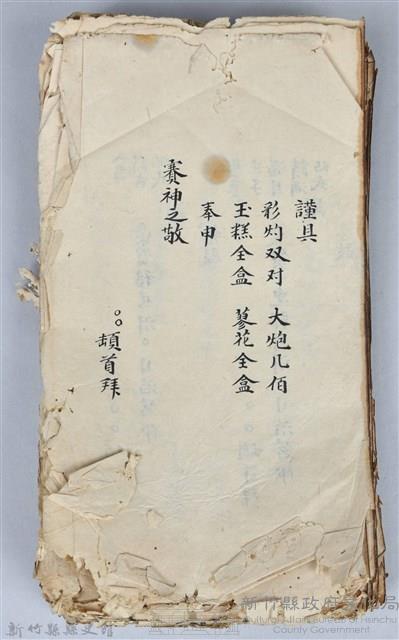 謹具
彩灼双对 大炮几佰
玉糕全盒 蓼花全盒
奉申
賽神之敬
○○頓首拜
新竹縣縣史館
新竹縣政府文化局
Cultural Affairs Bureau of Hsinchu
County Government